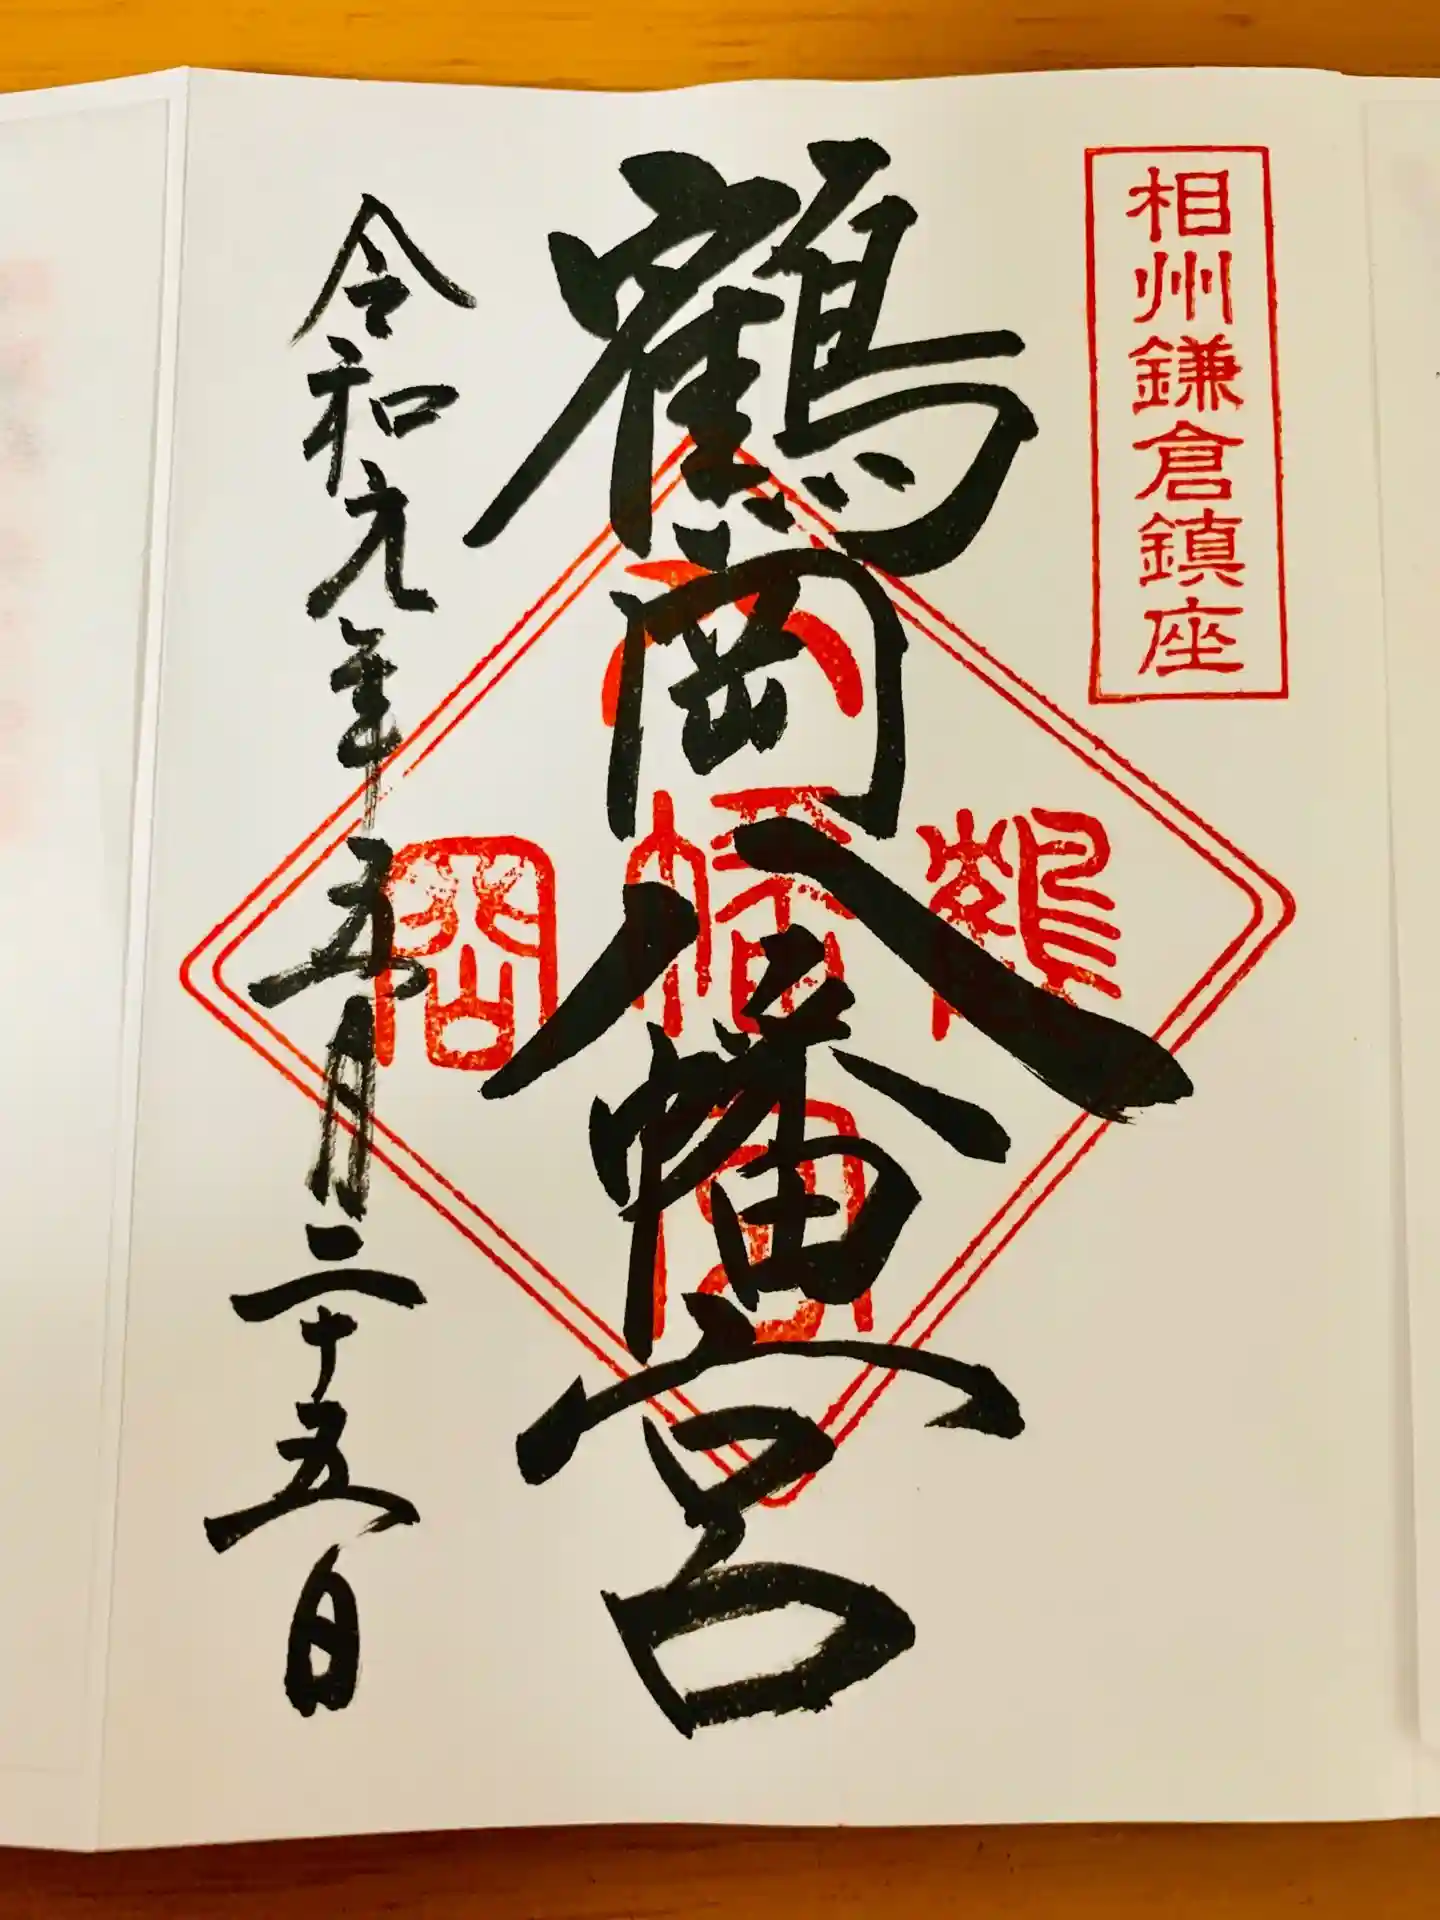 相州鎌倉鎮座
鶴岡八幡宮
令和元年五月二十五日
鶴
八幡宮
岡